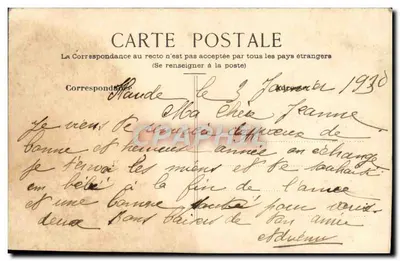 CARTE POSTALE
La Correspondance au recto n'est pas acceptée par tous les pays étrangers
(Se renseigner à la poste)
Correspondance
le 3 Janvier 1930
Ma Chère Jeanne
Je viens de
bonne et heureuse année en échange
je t'envoi les miens et te souhaite
un bébé à la fin de l'année
et une bonne santé pour vous
deux bons baisers de ton amie